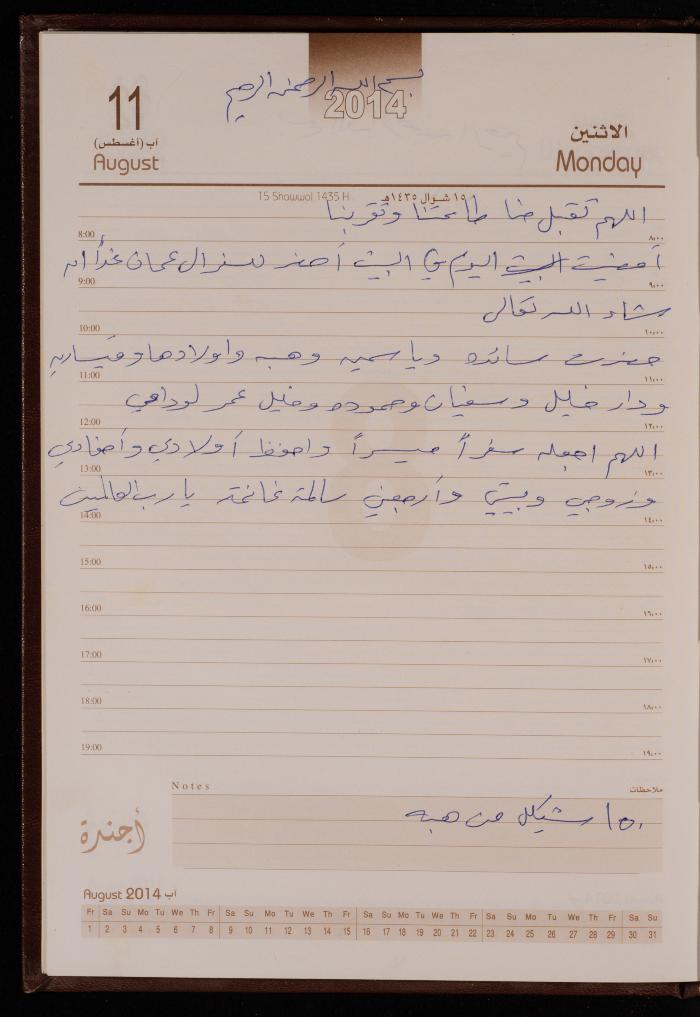 بسم الله الرحمن الرحيم
2014
11
آب (أغسطس)
August
الاثنين
Monday
15 Shawwal 1435 H ١٥ شوال ١٤٣٥هـ
اللهم تقبل منا طاعتنا وتقربنا
8:00 ٨،٠٠
أمضيت البيت اليوم في البيت أحضر للسفر ال عمان غداً ان
9:00 ٩،٠٠
شاء الله تعالى
10:00 ١٠،٠٠
حضرت سائده وياسمين وهبه واولادها
11:00 ١١،٠٠
ودار خليل وسفيان وحموده وخليل عمر لوداعي
12:00 ١٢،٠٠
اللهم اجعله سفراً ميسراً واحفظ أولادي وأحفادي
13:00 ١٣،٠٠
وزوجي وبيتي وأرجعني سالمة غانمة يا رب العالمين
14:00 ١٤،٠٠
15:00 ١٥،٠٠
16:00 ١٦،٠٠
17:00 ١٧،٠٠
18:00 ١٨،٠٠
19:00 ١٩،٠٠
Notes ملاحظات
١٥٠ شيكل من هبه
أجندة
August 2014 آب
Fr Sa Su Mo Tu We Th Fr Sa Su Mo Tu We Th Fr Sa Su Mo Tu We Th Fr Sa Su Mo Tu We Th Fr Sa Su
1 2 3 4 5 6 7 8 9 10 11 12 13 14 15 16 17 18 19 20 21 22 23 24 25 26 27 28 29 30 31